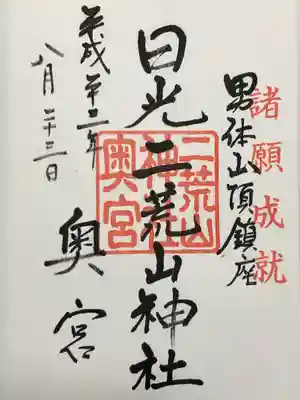 諸願成就
男体山頂鎮座
日光二荒山神社
奥宮
二荒山
神社
奥宮
平成廿二年
八月二十三日